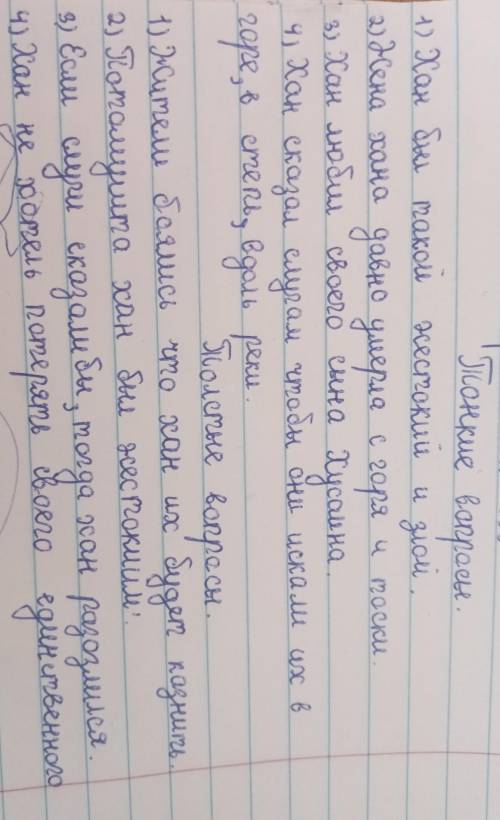 Тонкие вопросы.
1) Хан был такой жестокий и злой.
2) Жена хана давно умерла с горя и тоски.
3) Хан любил своего сына Хусаина.
4) Хан сказал слугам чтобы они искали их в
горе, в степь, вдоль реки.
Толстые вопросы.
1) Жители боялись что хан их будет казнить.
2) Потомушта хан был жестокийм!
3) Если слуги сказалибы, тогда хан разозлился.
4) Хан не хотель потерять своего единственного